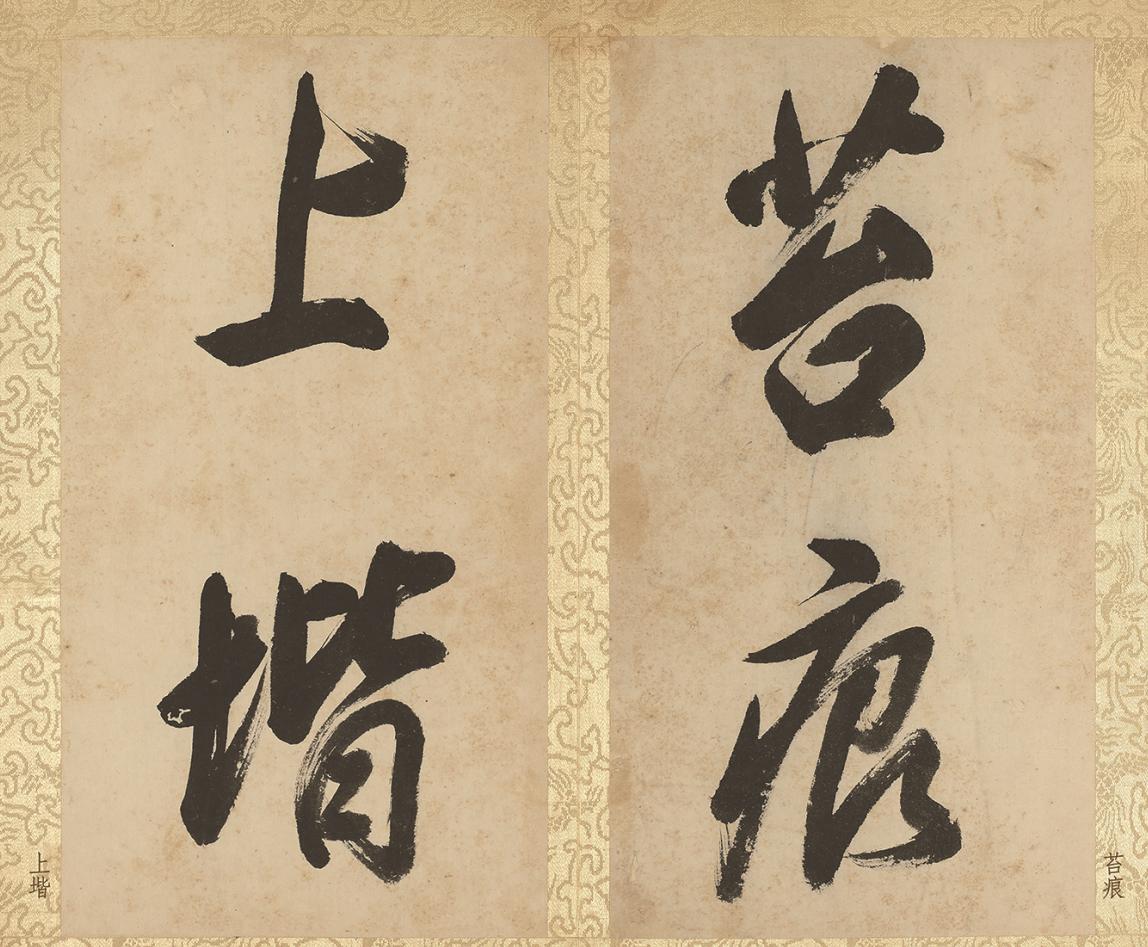 苔痕
上堦
苔痕
上堦